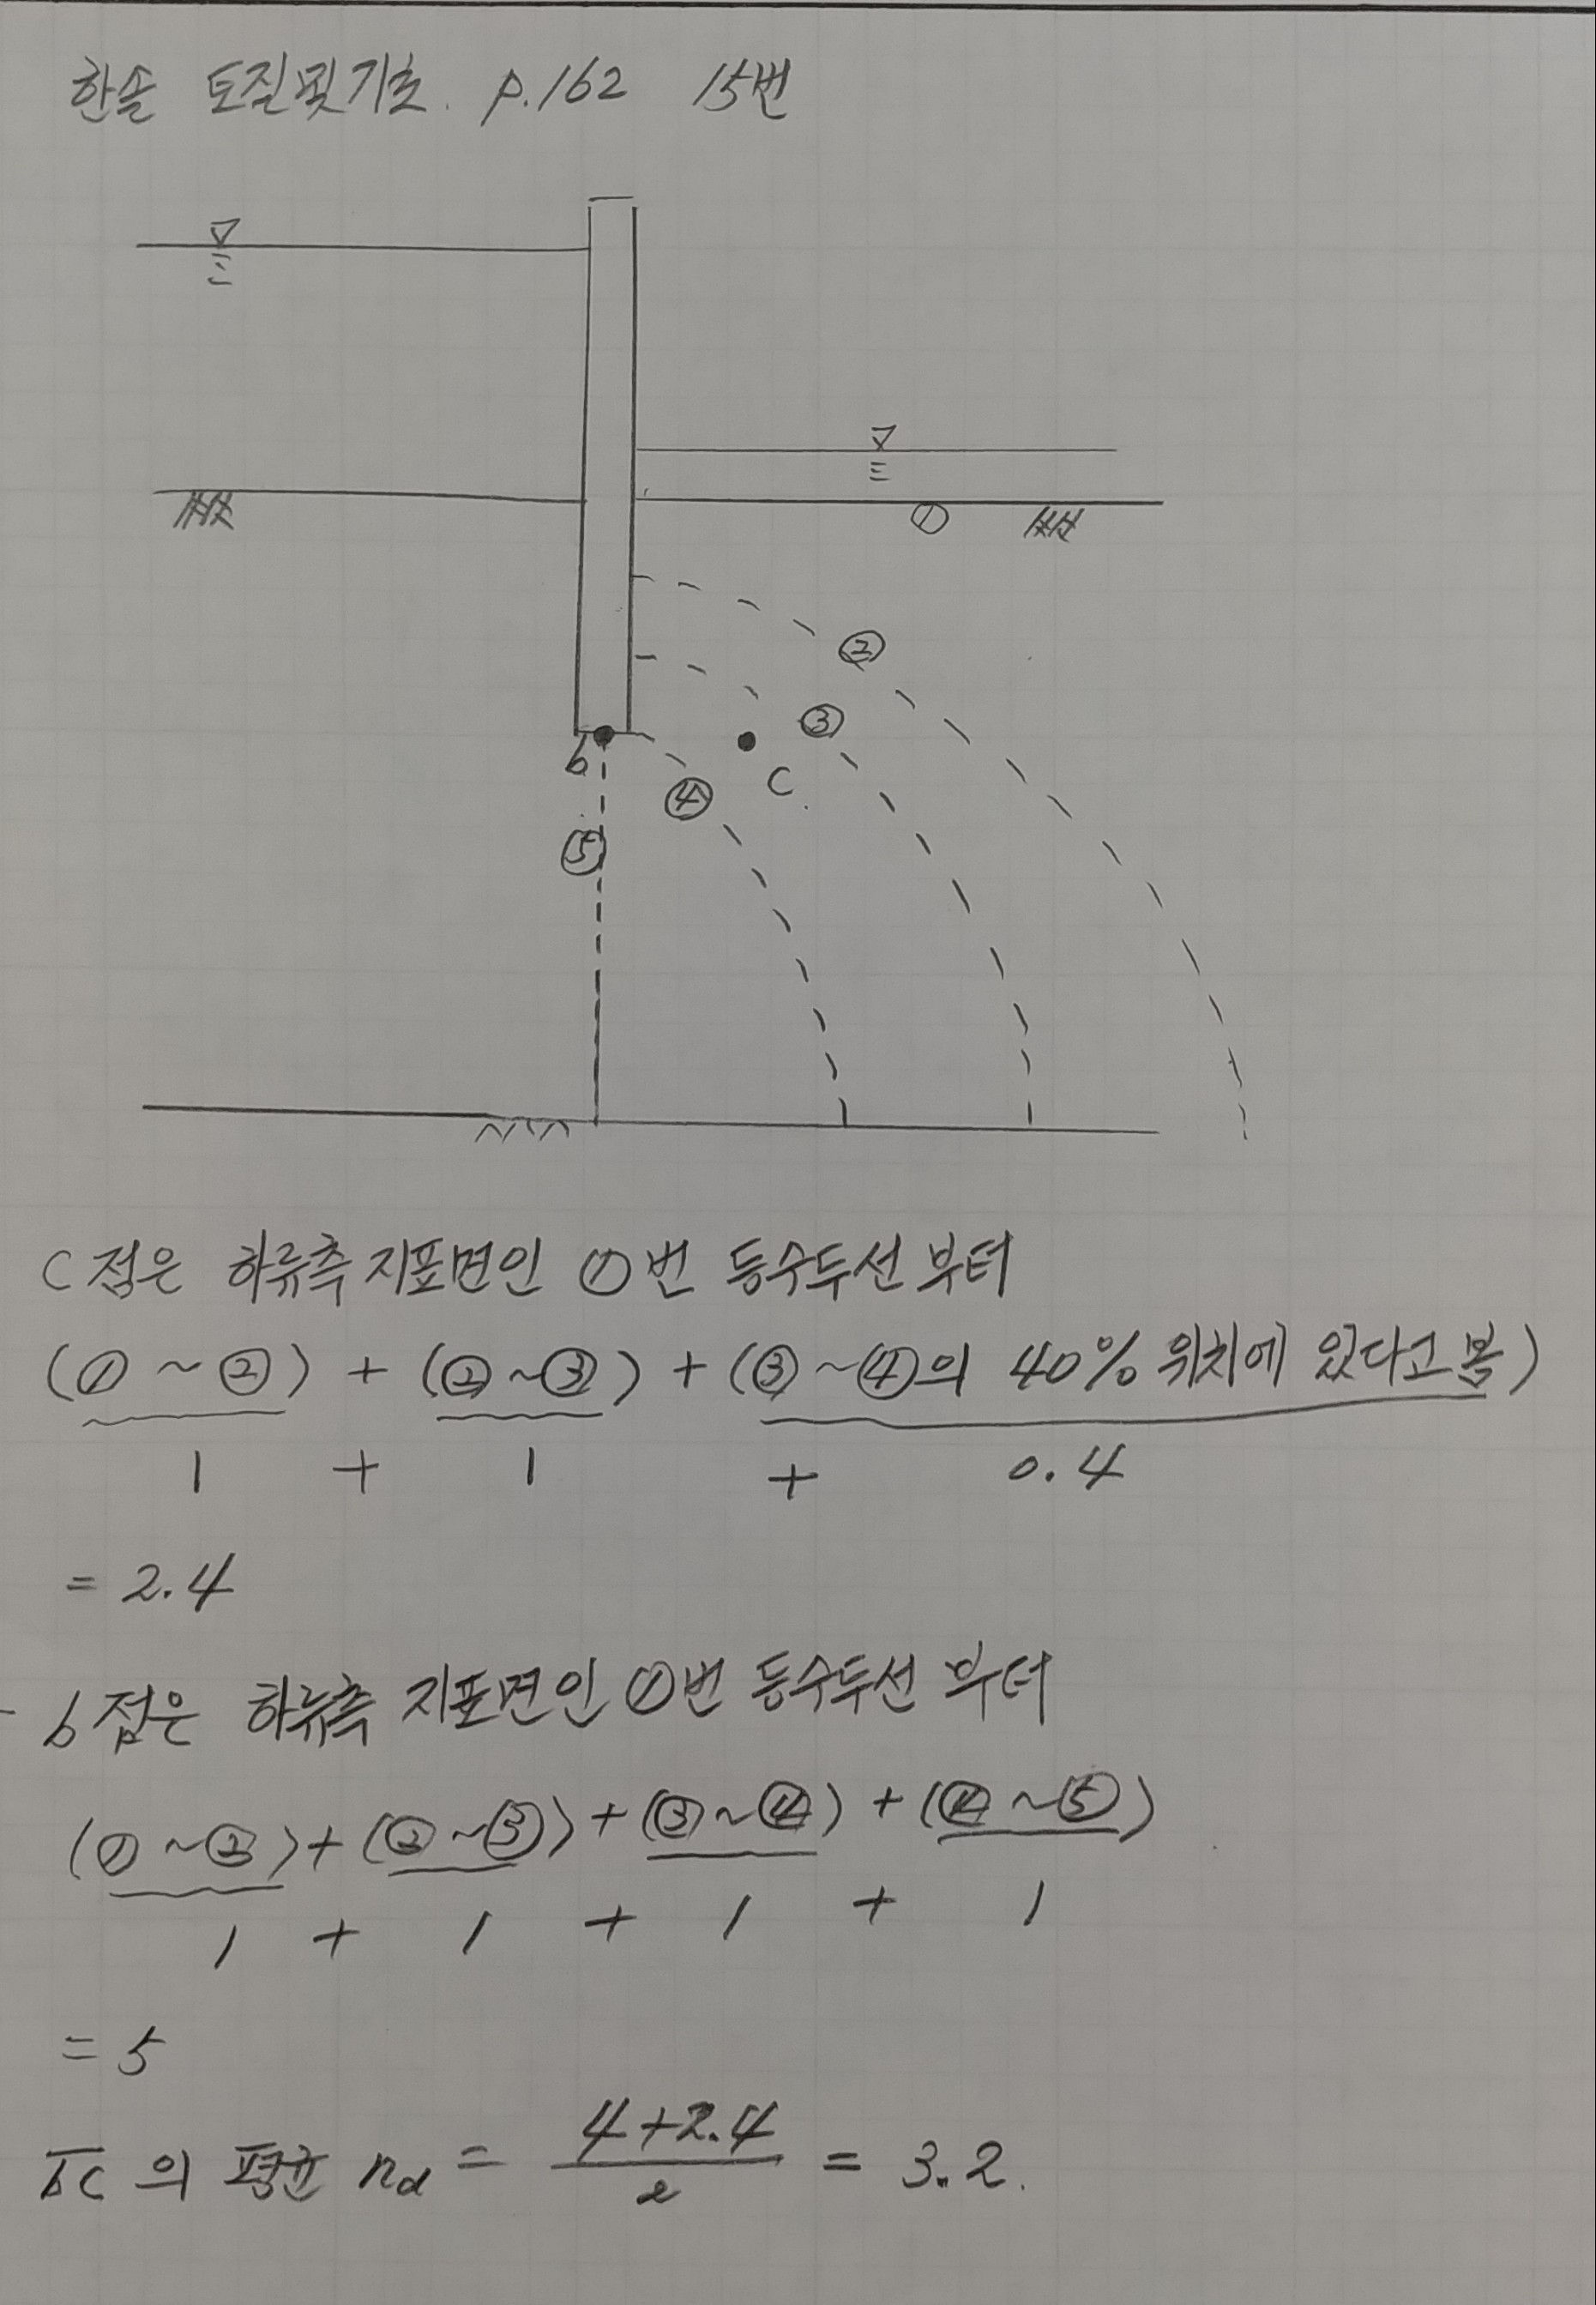 한솔 토질및기초. p.162 15번
①
②
③
b
C
④
⑤
C점은 하류측 지표면인 ①번 등수두선 부터
(① ~ ②) + (② ~ ③) + (③ ~ ④의 40% 위치에 있다고 봄)
1 + 1 + 0.4
= 2.4
b점은 하류측 지표면인 ①번 등수두선 부터
(① ~ ②) + (② ~ ③) + (③ ~ ④) + (④ ~ ⑤)
1 + 1 + 1 + 1
= 5
bC 의 평균 nd = 4+2.4 / 2 = 3.2.